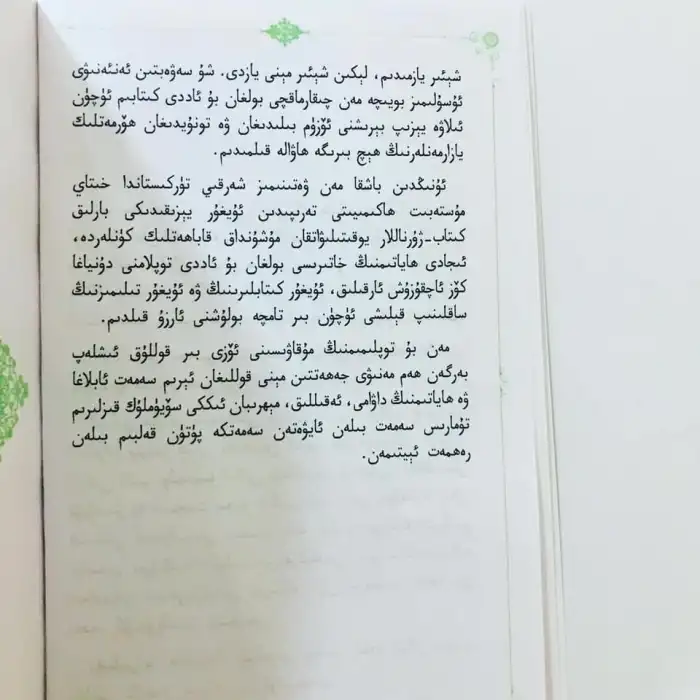 شېئىر يازمىدىم، لېكىن شېئىر مېنى يازدى. شۇ سەۋەبتىن ئەنئەنىۋى
ئۇسۇلىمىز بويىچە مەن چىقارماقچى بولغان بۇ ئاددى كىتابىم ئۈچۈن
ئىلاۋە يېزىپ بېرىشنى ئۆزۈم بىلىدىغان ۋە تونۇيدىغان ھۆرمەتلىك
يازارمەنلەرنىڭ ھېچ بىرىگە ھاۋالە قىلمىدىم.
ئۇنىڭدىن باشقا مەن ۋەتىنىمىز شەرقىي تۈركىستاندا خىتاي
مۇستەبىت ھاكىمىيىتى تەرىپىدىن ئۇيغۇر يېزىقىدىكى بارلىق
كىتاب-ژۇرناللار يوقىتىلىۋاتقان مۇشۇنداق قاباھەتلىك كۈنلەردە،
ئىجادى ھاياتىمنىڭ خاتىرىسى بولغان بۇ ئاددى توپلامنى دۇنياغا
كۆز ئاچقۇزۇش ئارقىلىق، ئۇيغۇر كىتابلىرىنىڭ ۋە ئۇيغۇر تىلىمىزنىڭ
ساقلىنىپ قېلىشى ئۈچۈن بىر تامچە بولۇشنى ئارزۇ قىلدىم.
مەن بۇ توپلىمىمنىڭ مۇقاۋىسىنى ئۆزى بىر قوللۇق ئىشلەپ
بەرگەن ھەم مەنىۋى جەھەتتىن مېنى قوللىغان ئېرىم سەمەت ئابلاغا
ۋە ھاياتىمنىڭ داۋامى، ئەقىللىق، مېھرىبان ئىككى سۆيۈملۈك قىزلىرىم
تۇمارىس سەمەت بىلەن ئايۋەتەن سەمەتكە پۈتۈن قەلبىم بىلەن
رەھمەت ئېيتىمەن.